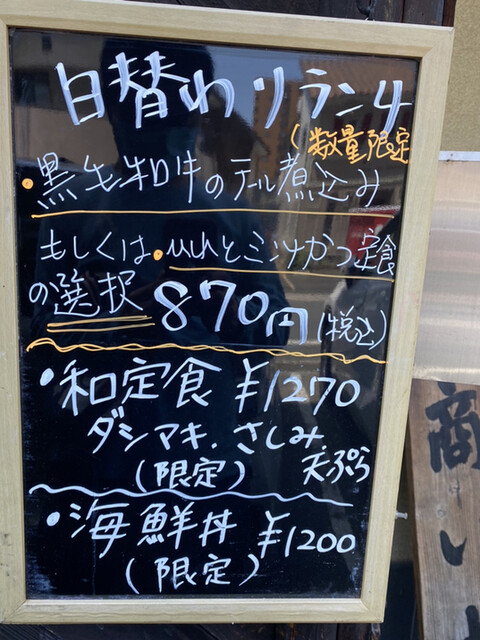 日替わりランチ
(数量限定
・黒毛和牛のテール煮込み
もしくは・ミンチかつ定食
の選択 870円(税込)
・和定食 ¥1270
ダシマキ.さしみ.
(限定) 天ぷら
・海鮮丼 ¥1200
(限定)
商い